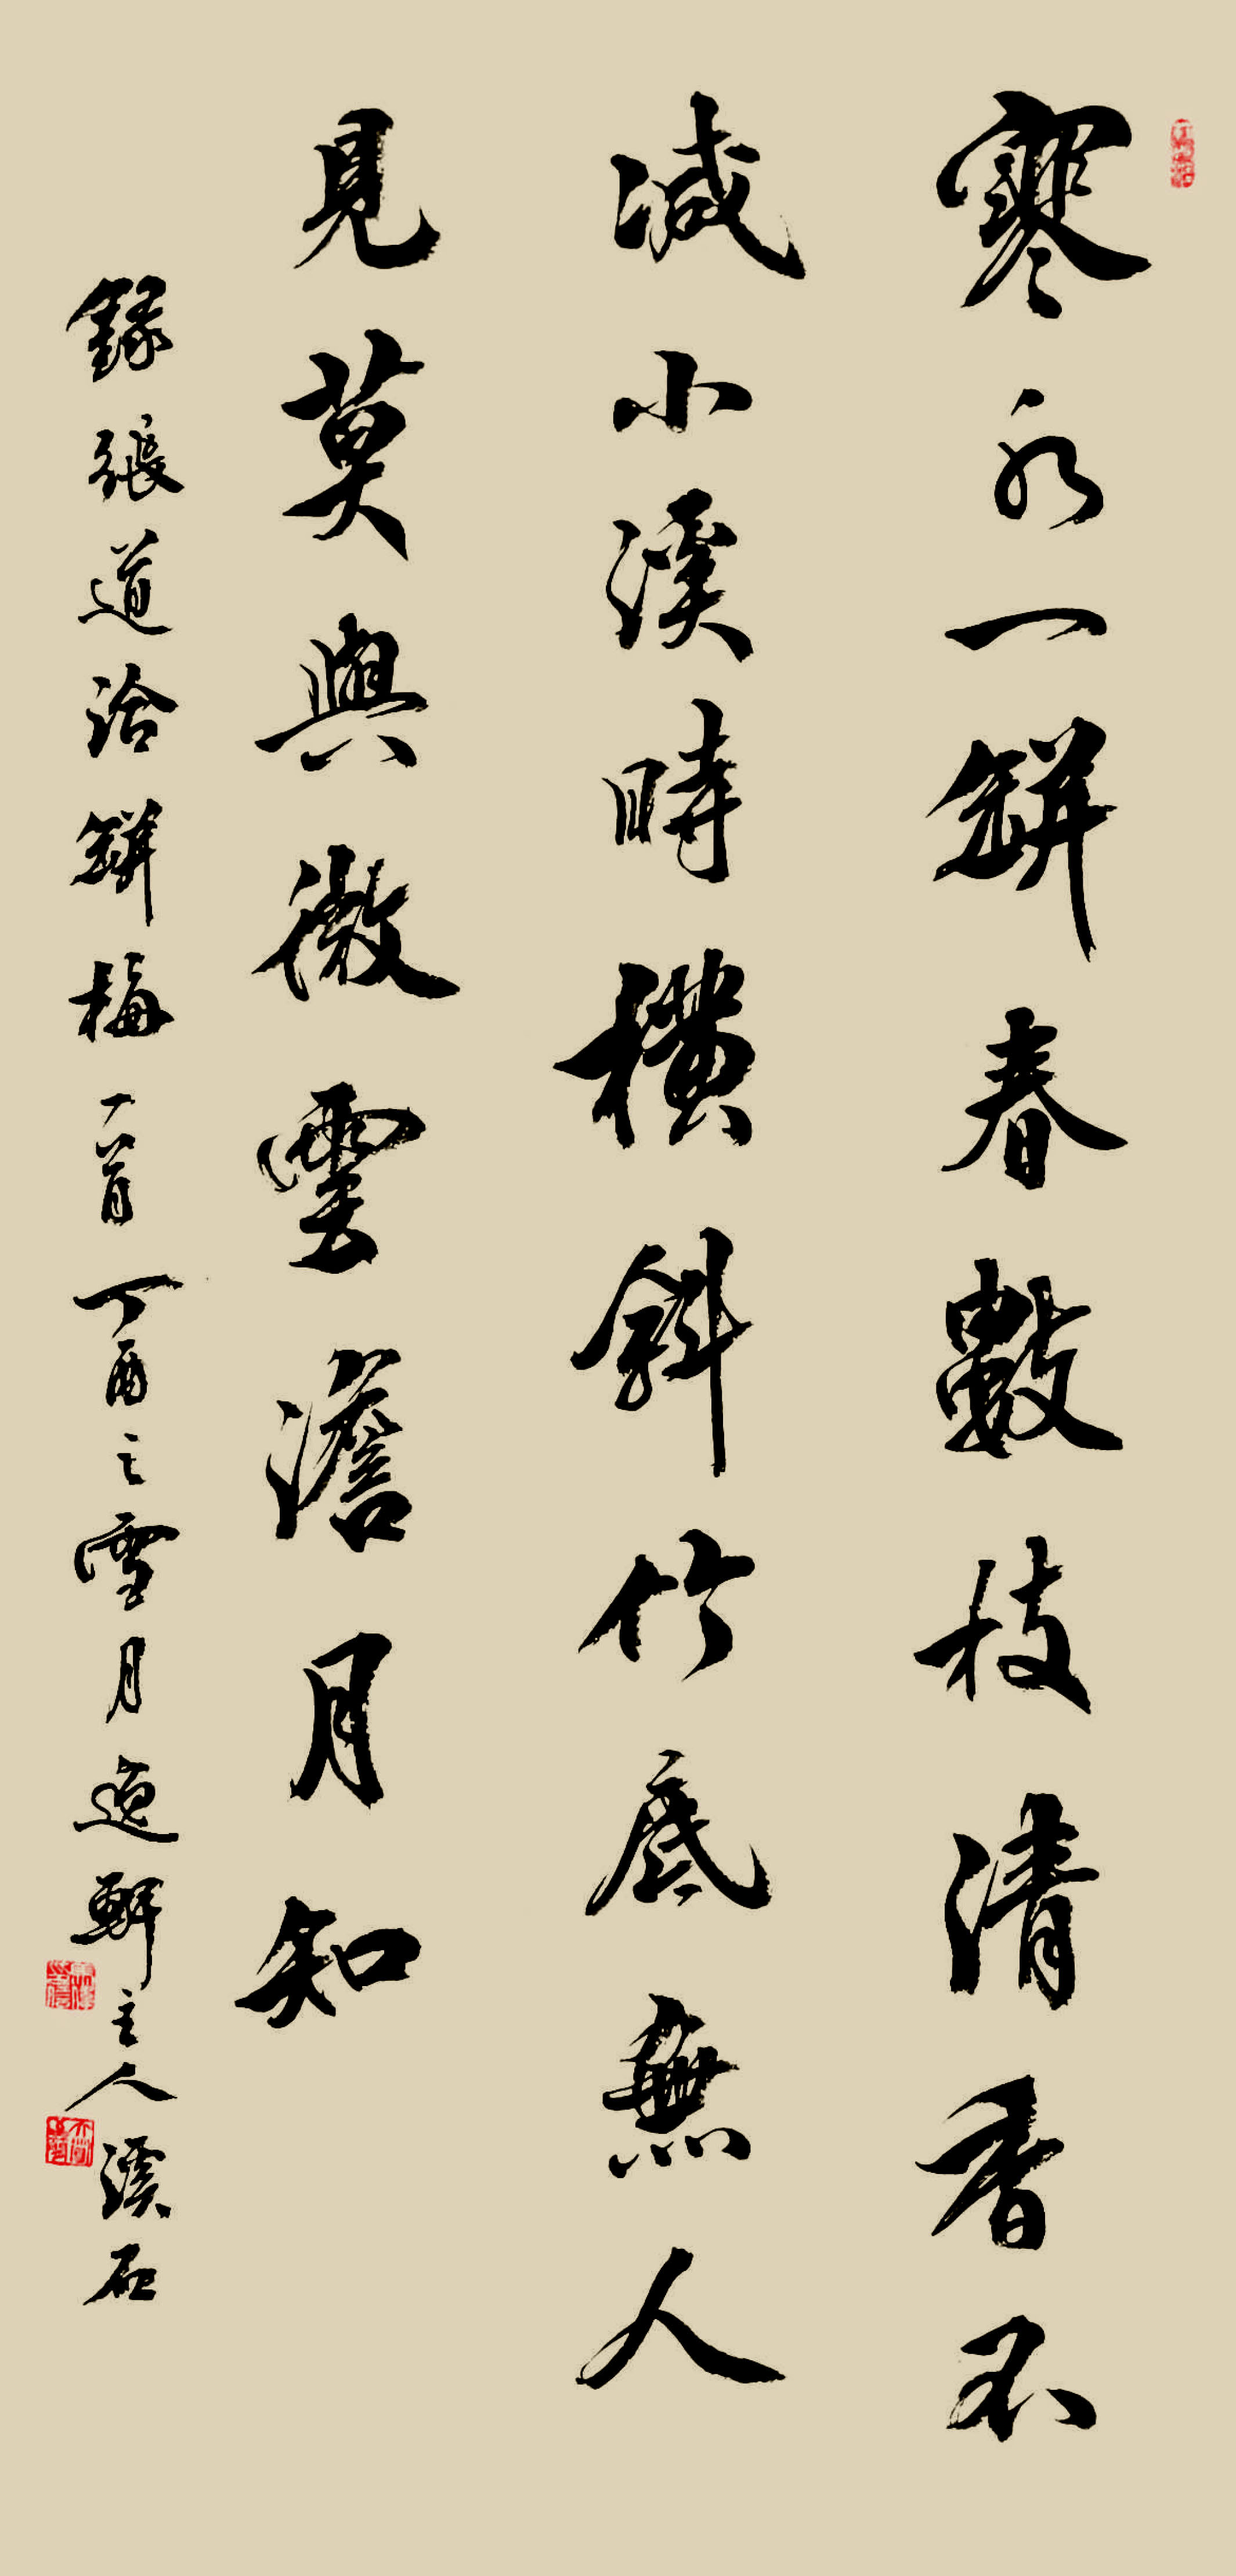 寒水一缾春數枝清香不
減小溪時橫斜竹底無人
見莫與微雲澹月知
錄張道洽缾梅一首丁酉之雪月逸軒主人溪石